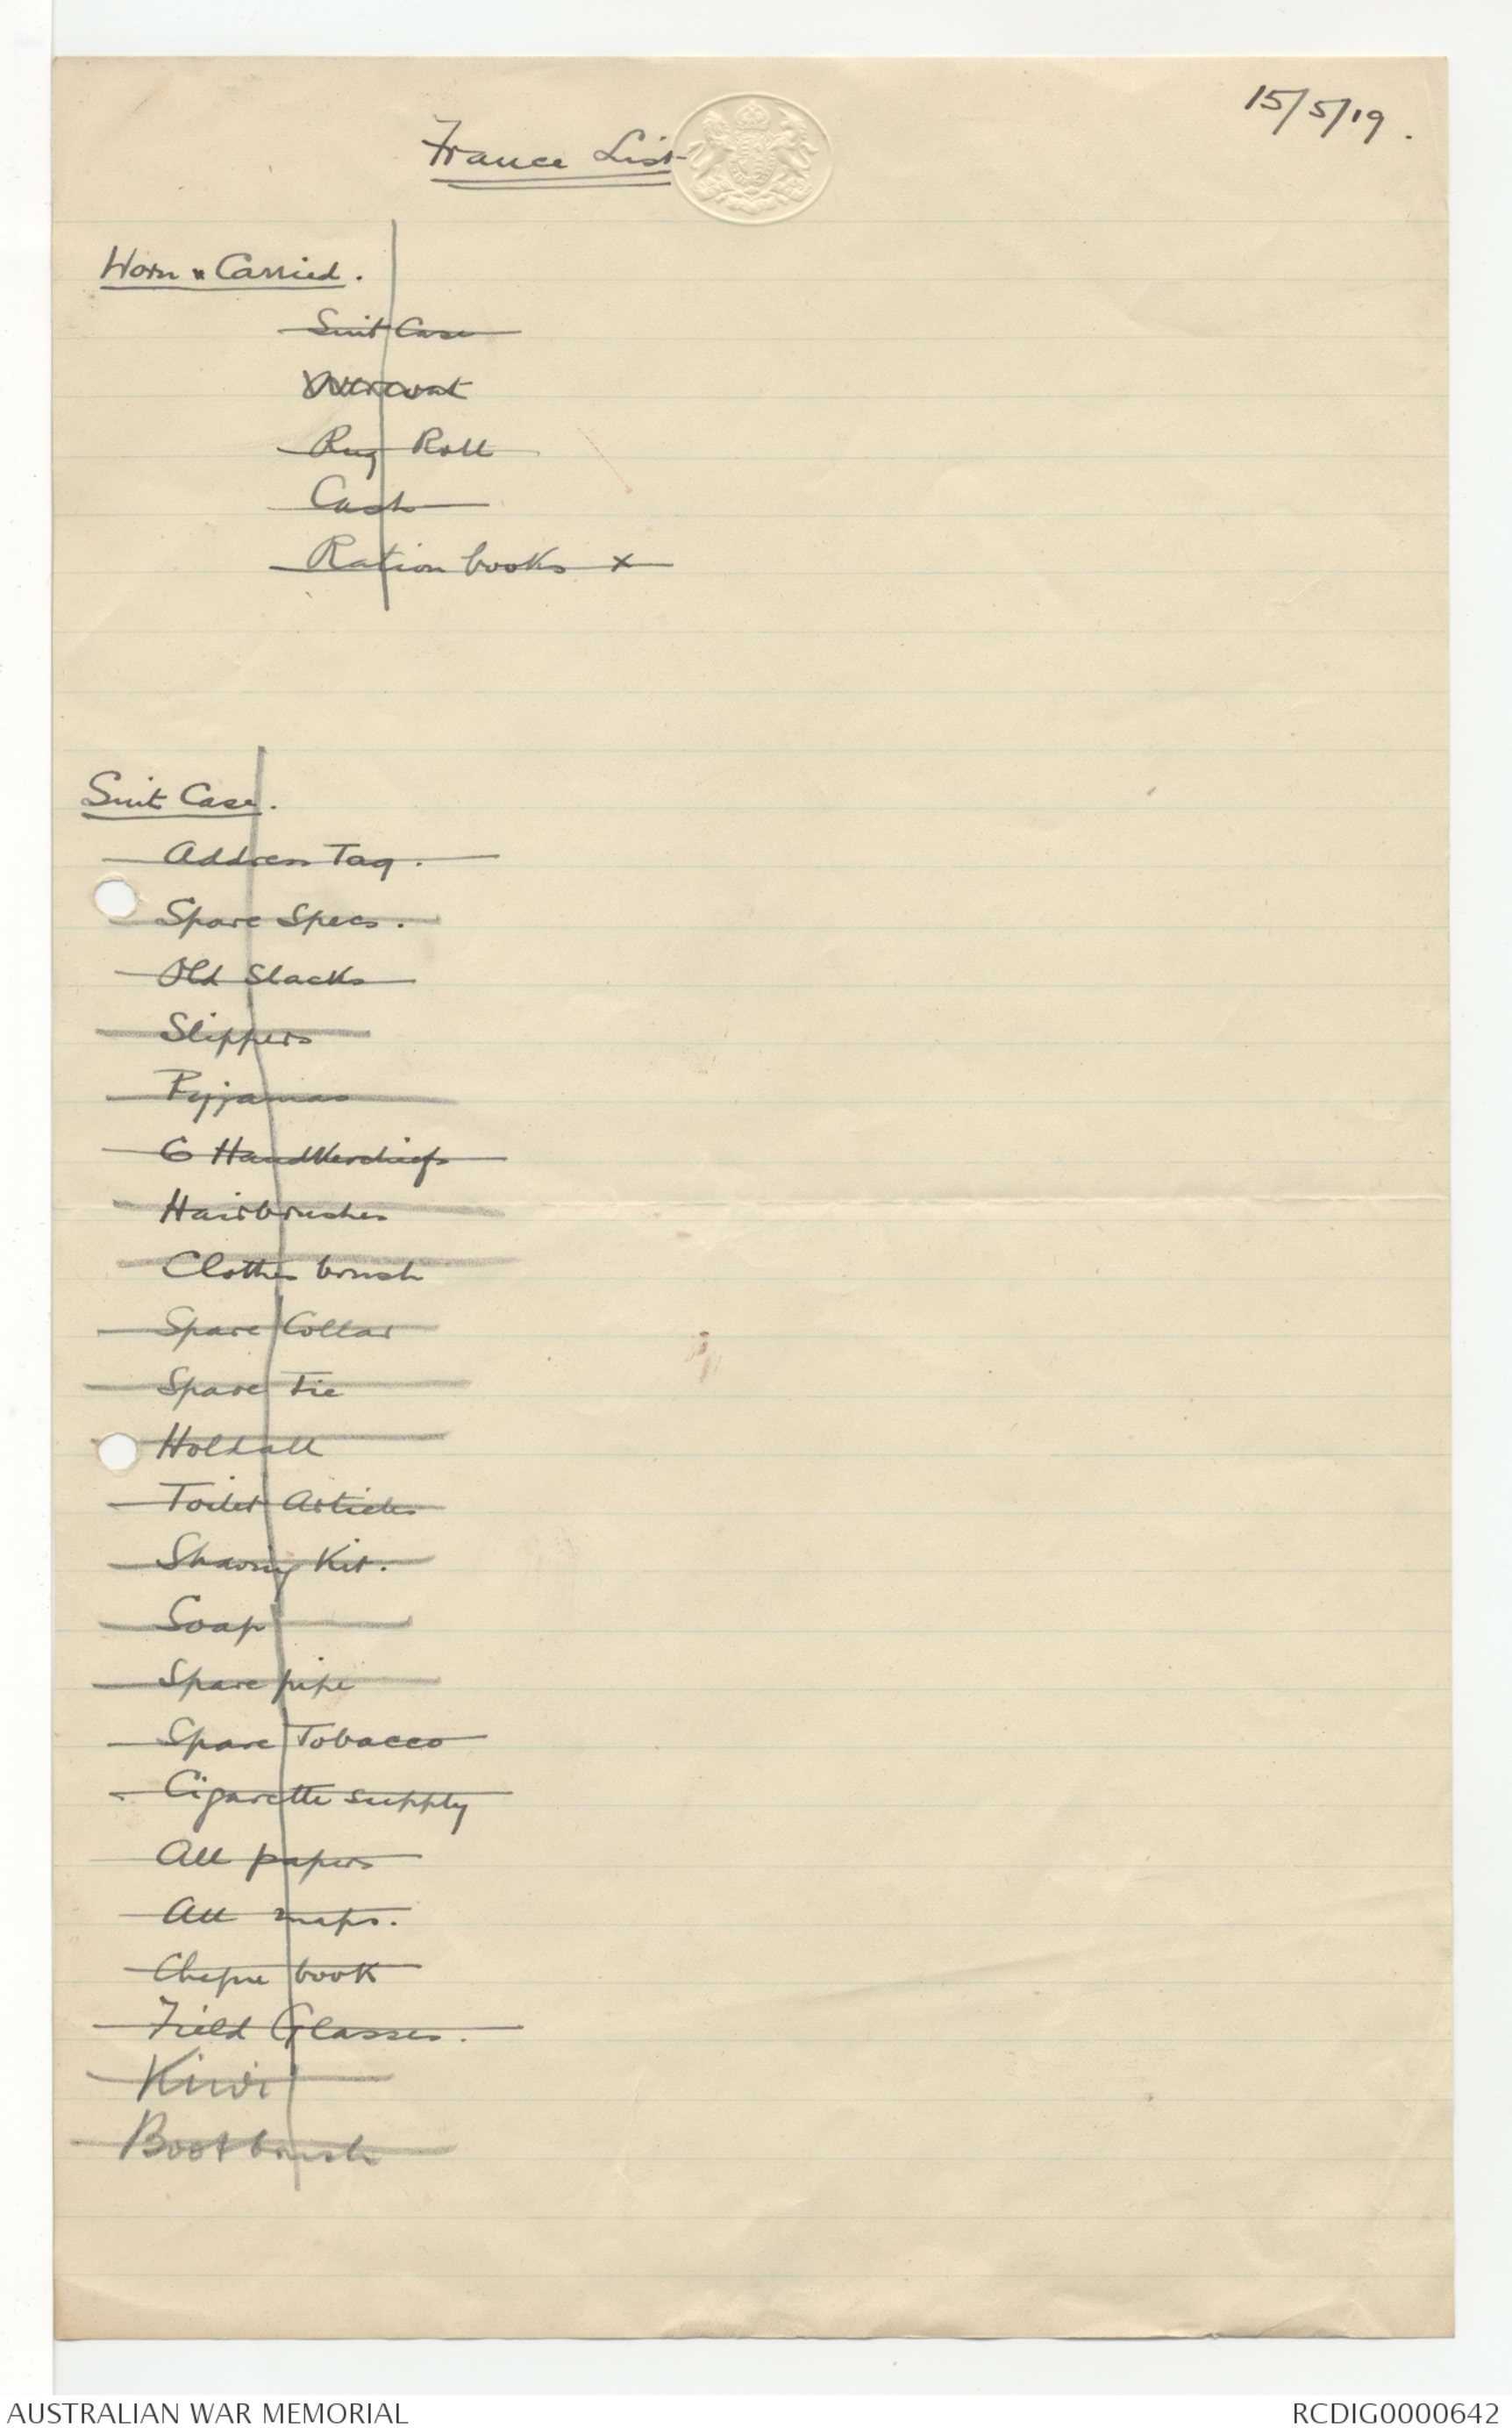 15/5/19.
France List
Worn & Carried.
Suit Case
Overcoat
Rug Roll
Cash
Ration books x
Suit Case.
Address Tag.
Spare Specs.
Old Slacks
Slippers
Pyjamas
6 Handkerchiefs
Hairbrushes
Clothes brush
Spare Collar
Spare Tie
Holdall
Toilet Articles
Shaving Kit.
Soap
Spare pipe
Spare Tobacco
Cigarette supply
All papers
All maps.
Cheque book
Field Glasses.
Kiwi
Bootbrush
AUSTRALIAN WAR MEMORIAL
RCDIG0000642